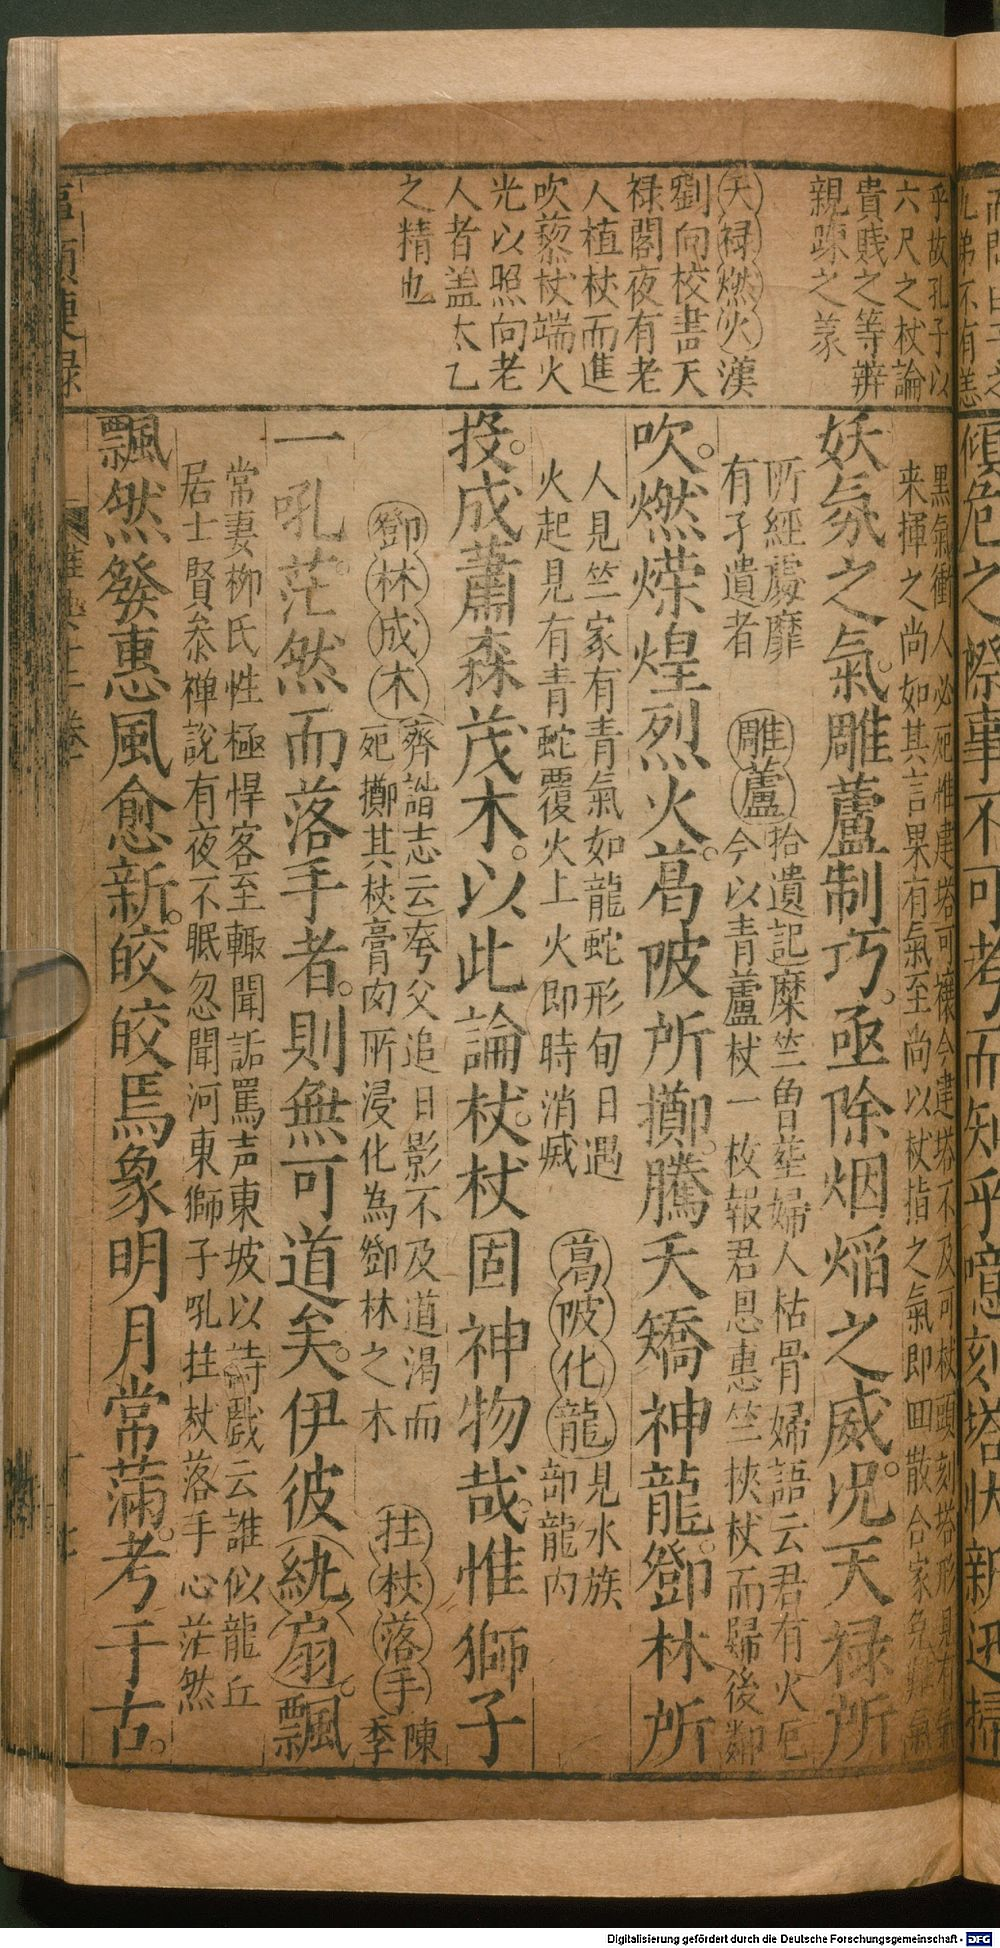 親踈之䒳
貴賤之等辨
六尺之杖論
乎故孔子以
天禄燃火漢
劉向校書天
禄閣夜有老
人植杖而進
吹藜杖端火
光以照向老
人者盖太乙
之精也
傾危之際事不可考而知乎噫刻塔
黒氣衝人必死惟建塔可禳今建塔不及可杖頭刻塔形
来揮之尚如其言果有氣至尚以杖指之氣即囬散合家免
妖氛之氣。雕蘆制巧。亟除烟熖之威。况天禄所
所經處靡
有孑遺者
雕蘆
拾遺記糜竺曾塟婦人枯骨婦語云君有火厄
今以青蘆杖一枚報君恩惠竺挾杖而歸後鄰
吹。燃煠煌烈火。葛陂所擲。騰夭矯神龍。鄧林所
人見竺家有青氣如龍蛇形旬日遇
火起見有青蛇覆火上火即時消滅
葛陂化龍
見水族
部龍内
投。成蕭森茂木。以此論杖。杖固神物哉。惟獅子
鄧林成木
齊諧志云夸父追日影不及道渴而
死擲其杖膏肉所浸化為鄧林之木
拄杖落手
陳
季
一吼。茫然而落手者。則無可道矣。伊彼紈扇。飄
常妻柳氏性極悍客至輙聞詬罵声東坡以詩戲云誰似龍丘
居士賢叅禅說有夜不眠忽聞河東獅子吼拄杖落手心茫然
飄然發惠風愈新。皎皎焉象明月常滿。考于古。
Digitalisierung gefördert durch die Deutsche Forschungsgemeinschaft - DFG